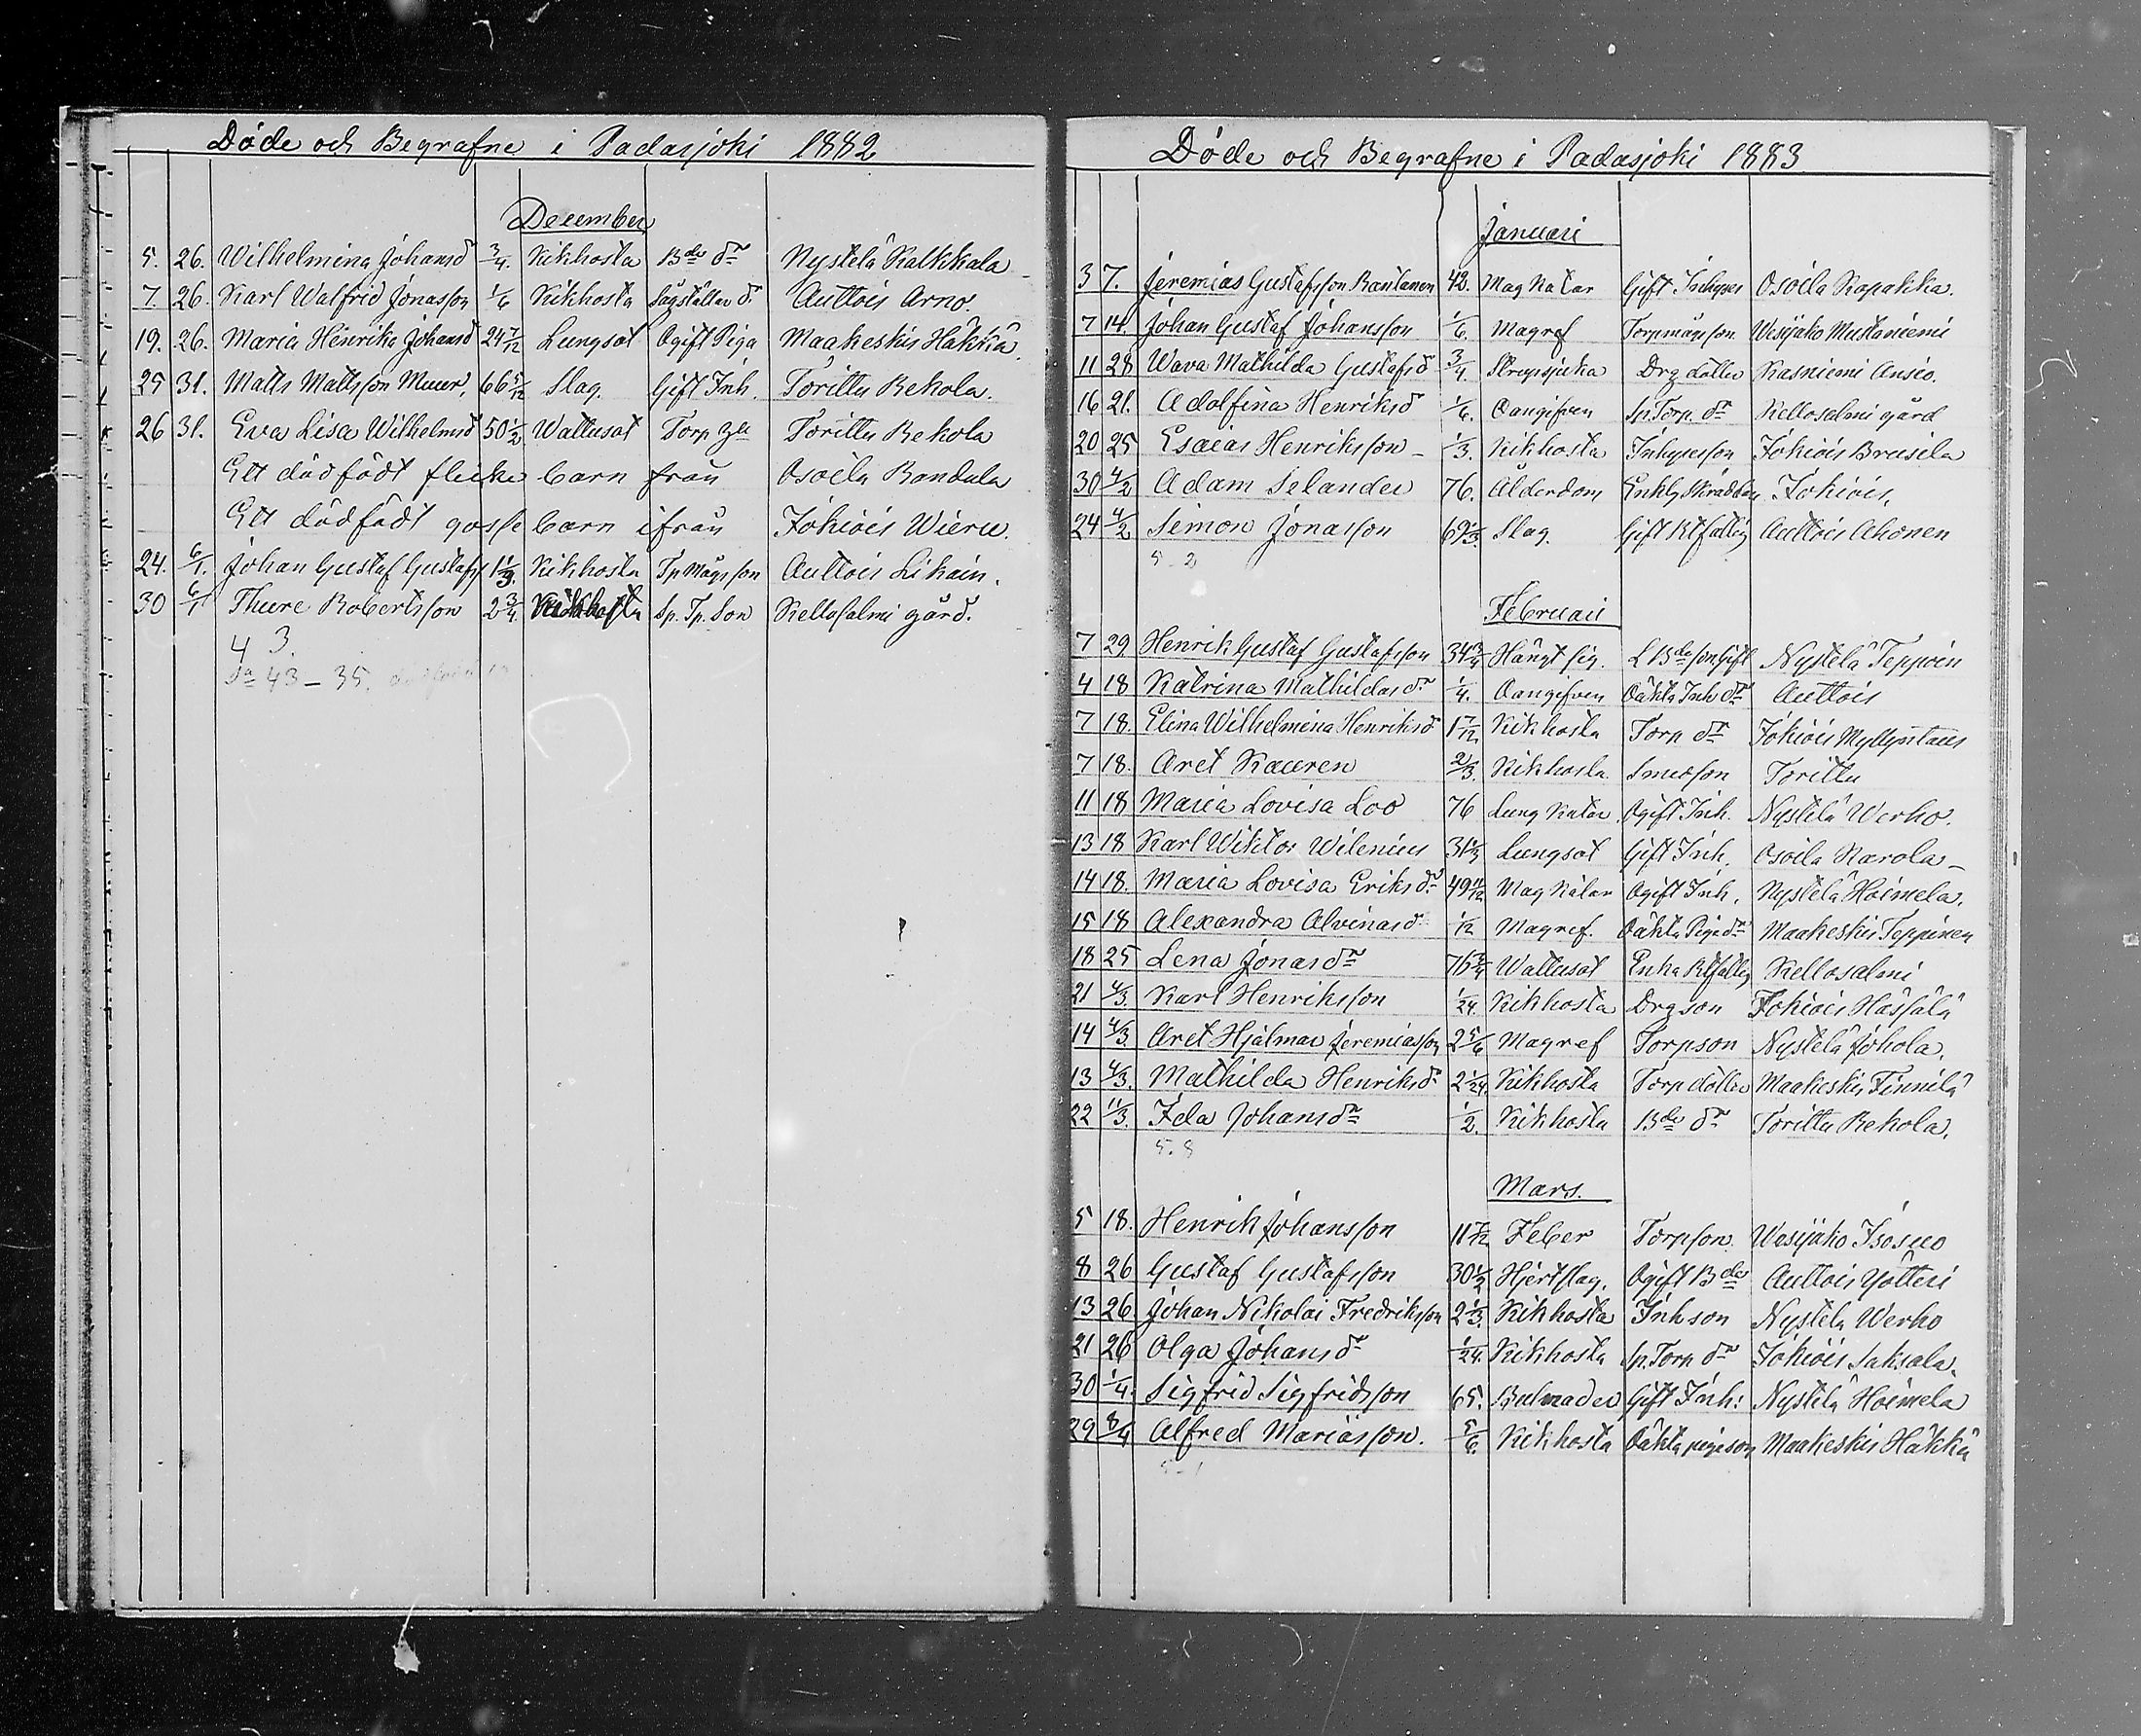 Döde och Begrafne i Padasjoki 1882
December
5. 26. Wilhelmina Johansd 3/4. Kikhosta Bde dr Nystelä Kalkkala
7 26. Karl Walfrid Jonasson 1/6 Kikhosta Auttois Arno.
19. 26. Maria Henrika Johansd 24 7/12 Lungsot Ogift Piga Maakeskis Häkkä.
25 31. Matts Mattsson Muur, 66 5/12 Slag. Gift Inh. Torittu Rekola.
26 31. Eva Lisa Wilhelmsd 50 1/2 Wattusot Torp Torittu Rekola
Ett dödfödt flicke barn från Osoila Randala
Ett dödfödt gosse barn ifrån Jokiois Wieru.
24. 6/1. Johan Gustaf Gustafss 1 1/3. Kikhosta Tp mågsson Auttois Likain.
30 6/1 Thure Robertsson 2 3/4. Kikhosta Sp. Tp. Son Kellosalmi gård.
4 3.
Sa 43 - 35.
Döde och Begrafne i Padasjoki 1883
Januari
3 7. Jeremias Gustafsson Rantanen 42. Mag Katar Gift Inhyses Osoila Kapakka.
7 14. Johan Gustaf Johansson 1/6 Magref Torpmågsson Wesijako Mustaniemi
11 28 Wava Mathilda Gustafsd 3/4. Strypsjuka Drg dotter Kasniemi Ansio.
16 21. Adolfina Henriksd 1/6. Oangifven Sp. Torp. dr Kellosalmi gård
20 25 Esaias Henriksson 1/3. Kikhosta Inhysesson Jokiois Brusila
30 4/2 Adam Selander 76. Ålderdom Enkl. Skräddare Jokiois,
24 4/2 Simon Jonasson 69 1/3. Slag. Gift Rtfattig Auttois Ahonen
5 - 2
Februari
7 29 Henrik Gustaf Gustafsson 34 3/4 Hängt sig. L Bde son Gift Nystelä Teppoin
4 18 Katrina Mathildas dr 1/4. Oangifven Oäkta Inh dr Auttois
7 18. Elina Wilhelmina Henriksd 1 7/12 Kikhosta Torp dr Jokiois Myllyntaus
7 18. Aret Kauren 2/3. Kikhosta Smedson Torittu
11 18 Maria Lovisa Loo 76 Lung Katar Ogift Inh. Nystelä Werho.
13 18 Karl Wiktor Wilenius 31 1/3 Lungsot Gift Inh. Osoila Narola
14 18. Maria Lovisa Eriks dr 49 11/12 Mag Katar Ogift Inh. Nystelä Hoimela.
15 18 Alexandra Alvinasd 1/12 Magref. Oäkta Piga dr Maakeskis Teppinen
18 25 Lena Jonas dr 76 3/4 Wattusot Enka Rtfattig Kellosalmi
21 4/3. Karl Henriksson 1/24. Kikhosta Drg son Jokiois Hässälä
14 4/3. Aret Hjalmar Jeremiasson 2 5/6 Magref Torpson Nystelä Johola.
13 4/3. Mathilda Henriksd 2 1/24. Kikhosta Torp dotter Maakeskis Finnilä
22 11/3. Ida Johans dr 1/2. Kikhosta Bde dr Torittu Rekola.
5. 8
Mars.
5 18. Henrik Johansson 11 7/12 Feber Torpson Wesijako Isosuo
8 26 Gustaf Gustafsson 30 1/2 Hjertslag. Ogift Bde Auttois Yötteri
13 26 Johan Nikolai Fredriksson 2 1/3. Kikhosta Inhson Nystelä Werho
21 26 Olga Johans dr 1/24. Kikhosta Sp. Torp dr Jokiois Saksala.
30 1/4. Sigfrid Sigfridsson 65. Bulnader Gift Inh: Nystelä Hoimela
29 8/4 Alfred Mariasson. 5/6. Kikhosta Oäkta pigeson Maakeskis Häkkä
5 - 1